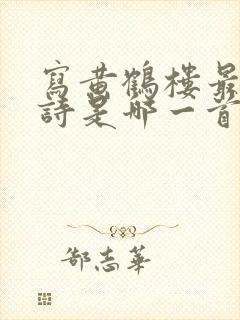 寫黄鶴樓最
詩是哪一首
郜志華